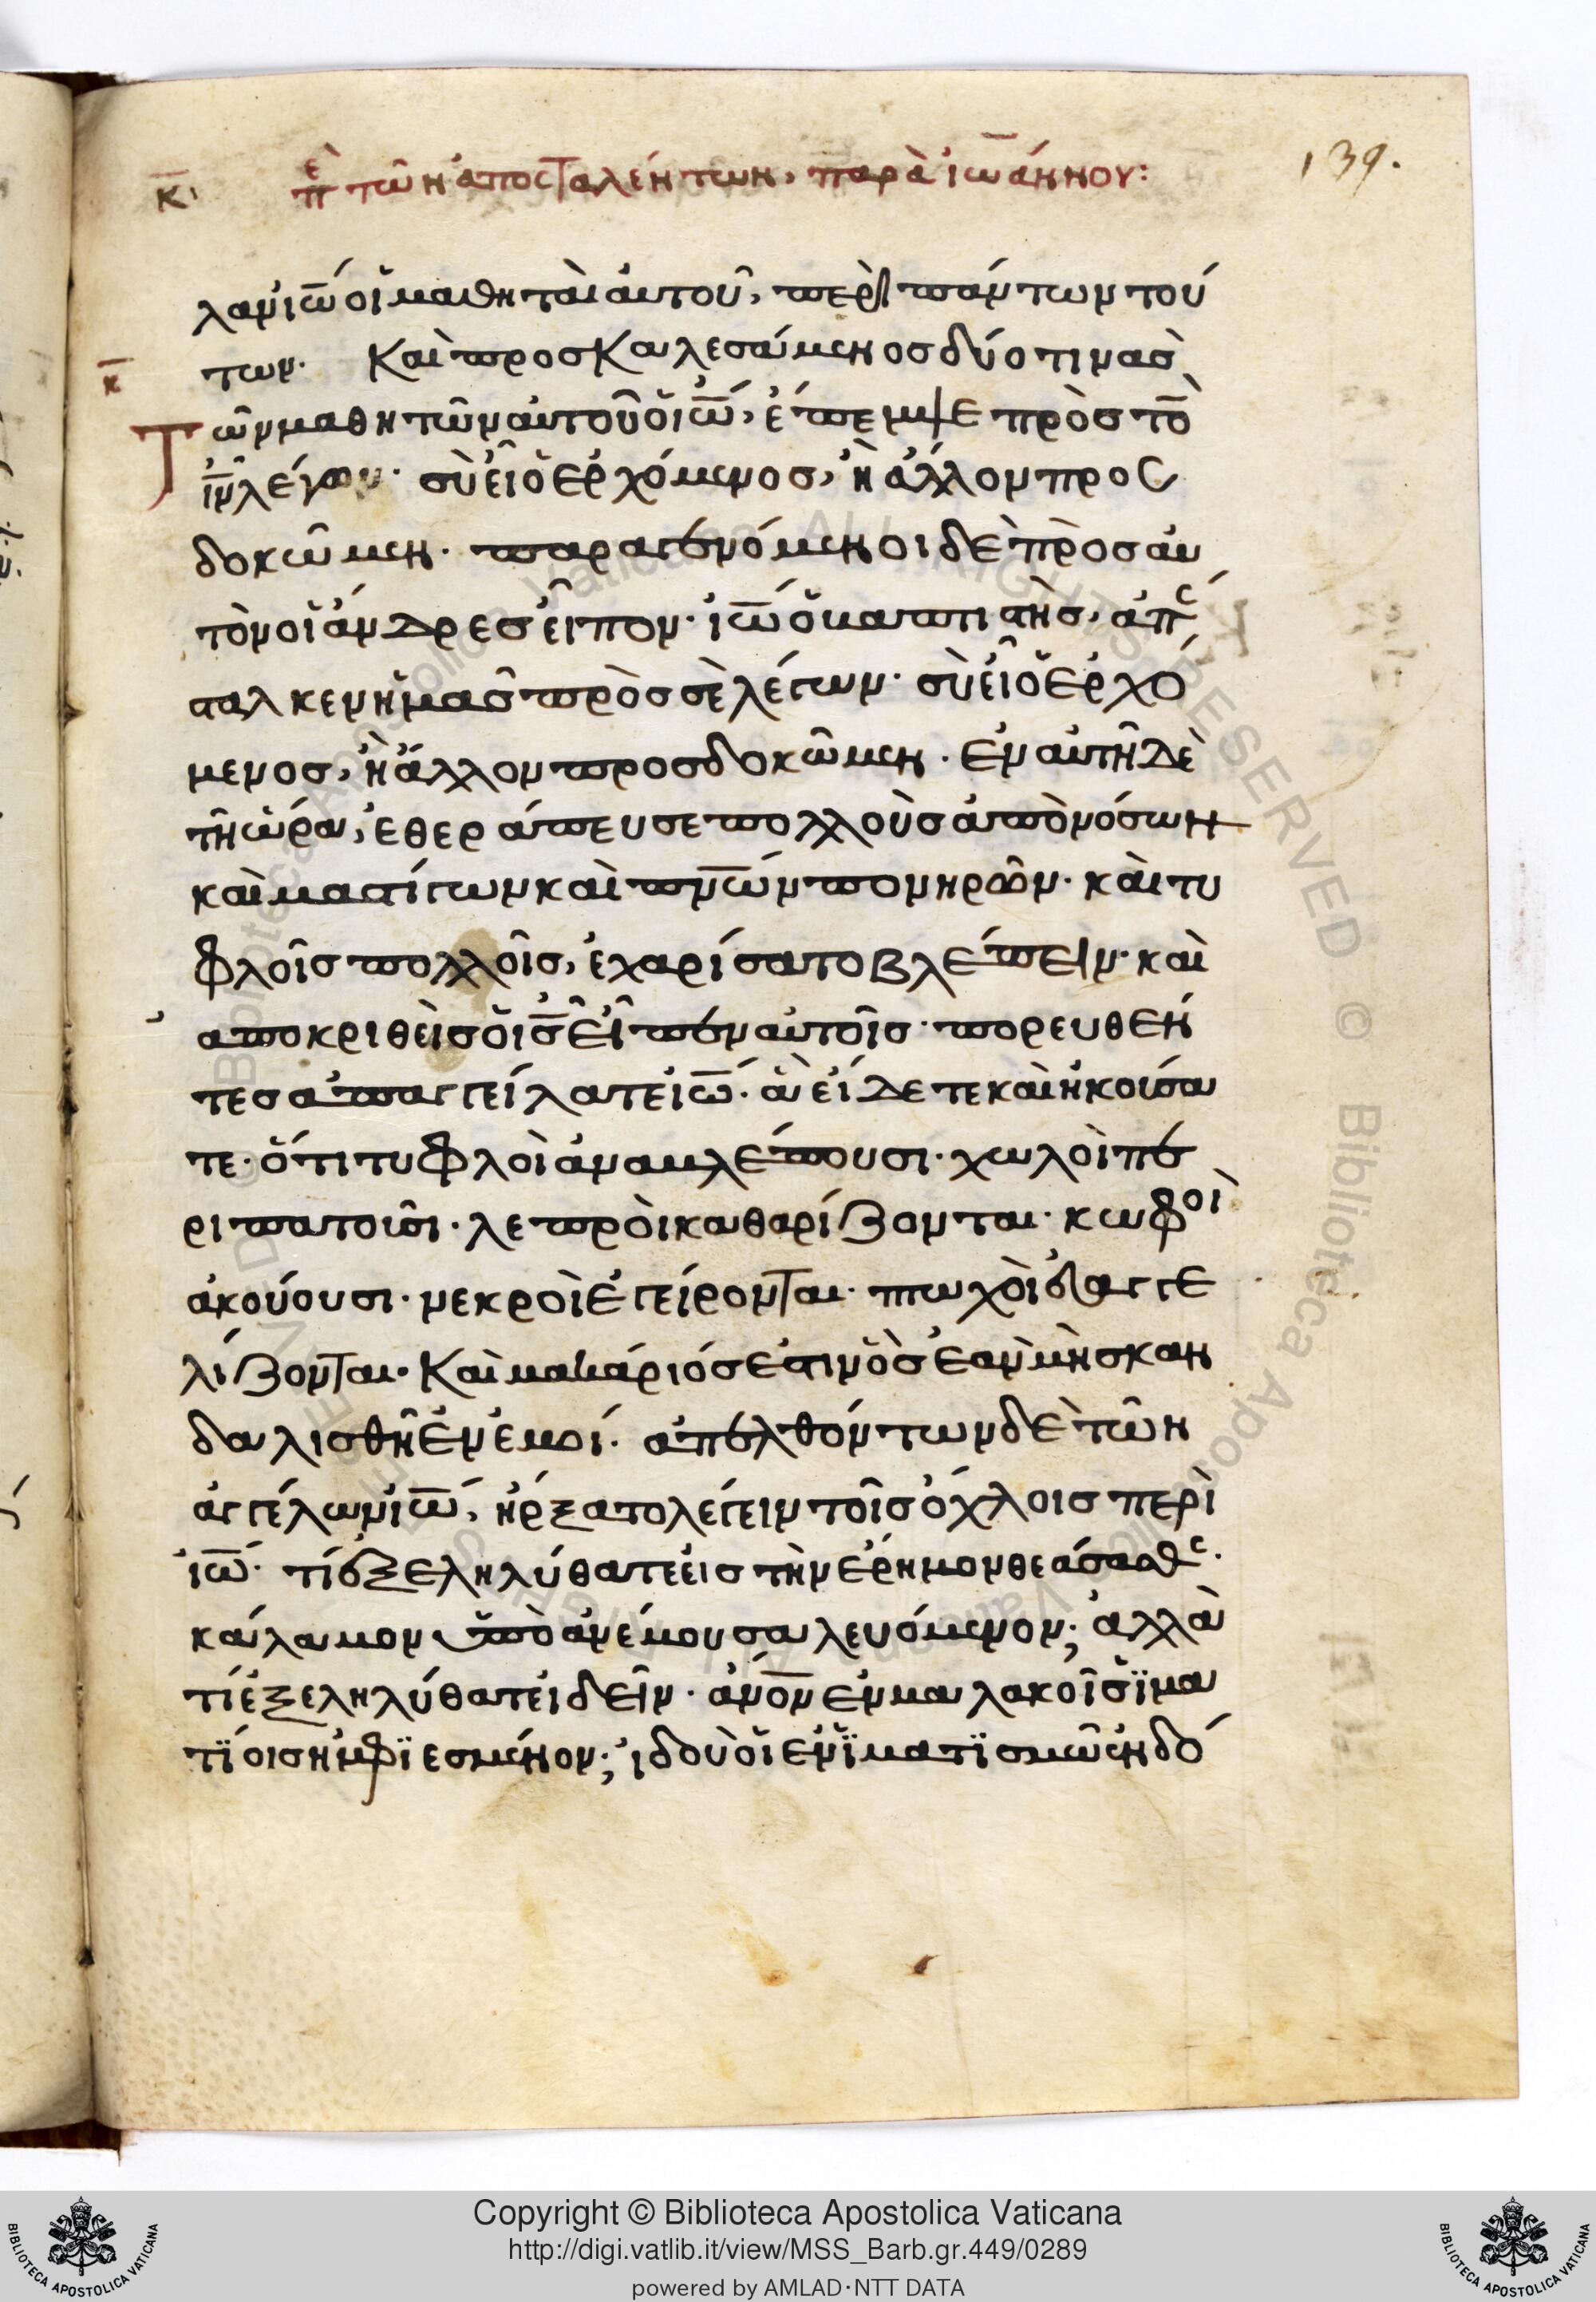 κ̅· πὲ τῶν ἀποσταλέντων, παρὰ ἰω̅άννου:
139.
λαν ἰω̅́ οἱ μαθηταὶ ἀυτοῦ, περὶ πάντων τού
κ̅ των. Καὶ προσκαλεσάμενος δύο τινὰσ
Τῶν μαθητῶν ἀυτοῦ ὁ ἰω̅́, ἔπεμψε πρὸσ τὸ̅
ι̅ν̅ λέγων· σὺ εἶ ὁ ἐρχόμενοσ, ἢ ἄλλον προσ
δοκῶμεν. παραγενόμενοι δὲ πρὸσ ἀυ
τὸν οἱ ἄνδρεσ εἶπον· ἰω̅́ ὁ βαπτιστὴσ, ἀπέ
σταλκεν ἡμᾶσ πρὸσ σὲ λέγων· σὺ εἶ ὁ ἐρχό
μενοσ, ἢ ἄλλον προσδοκῶμεν. ἐν ἀυτῆ δὲ
τῆ ὥρα, ἐθεράπευσε πολλοὺσ ἀπὸ νόσων
καὶ μαστίγων καὶ π̅ν̅ω̅́ν πονηρῶν· καὶ τυ
φλοῖσ πολλοῖσ, ἐχαρίσατο βλέπειν· καὶ
ἀποκριθεὶσ ὁ ι̅σ̅ εἶπεν ἀυτοῖσ· πορευθέν
τεσ ἀπαγγείλατε ἰω̅́. ἃ εἴδετε καὶ ἠκούσα
τε· ὅτι τυφλοὶ ἀναβλέπουσι· χωλοὶ πε
ριπατοῦσι· λεπροὶ καθαρίζονται· κωφοὶ
ἀκούουσι· νεκροὶ ἐγείρονται· πτωχοὶ ἐυαγγε
λίζονται· Καὶ μακάριόσ ἐστιν ὃσ ἐὰν μὴ σκαν
δαλισθῆ ἐν ἐμοί. ἀπελθόντων δὲ τῶν
ἀγγέλων ἰω̅́, ἤρξατο λέγειν τοῖσ ὄχλοισ περὶ
ἰω̅́· τί ἐξεληλύθατε εἰσ τὴν ἔρημον θεάσασθε·
κάλαμον ὑπὸ ἀνέμου σαλευόμενον; ἀλλὰ
τί ἐξεληλύθατε ἰδεῖν· ἄν̅ο̅ν ἐν μαλακοῖσ ἱ̈μα
τίοισ ἠμφϊεσμένον; ἰδοὺ οἱ ἐν ἱ̈ματϊσμῶ ἐνδό
Copyright © Biblioteca Apostolica Vaticana
http://digi.vatlib.it/view/MSS_Barb.gr.449/0289
powered by AMLAD·NTT DATA